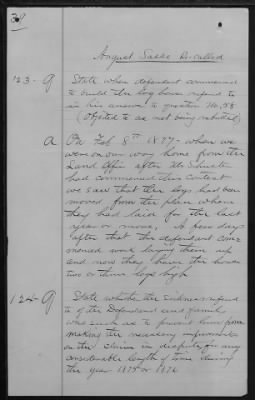 38
August Salee Recalled
123 - Q State when defendant commenced
to build the log house referred to
in his answer to question No. 58
(Objected to as not being rebuttal)
A On Feb 8th 1877 - when we
were on our way home from the
Land Office after Mr
had commenced this contest
we saw that the logs had been
moved from the place where
they had laid for the last
year or more. A few days
after that the defendant com-
menced work laying them up
and now they have the house
two or three logs high
124 - Q State whether the sickness referred
to of the Defendant and family
was such as to prevent him from
making the necessary improvements
on the claim in dispute for any
considerable length of time during
the year 1875 or 1876